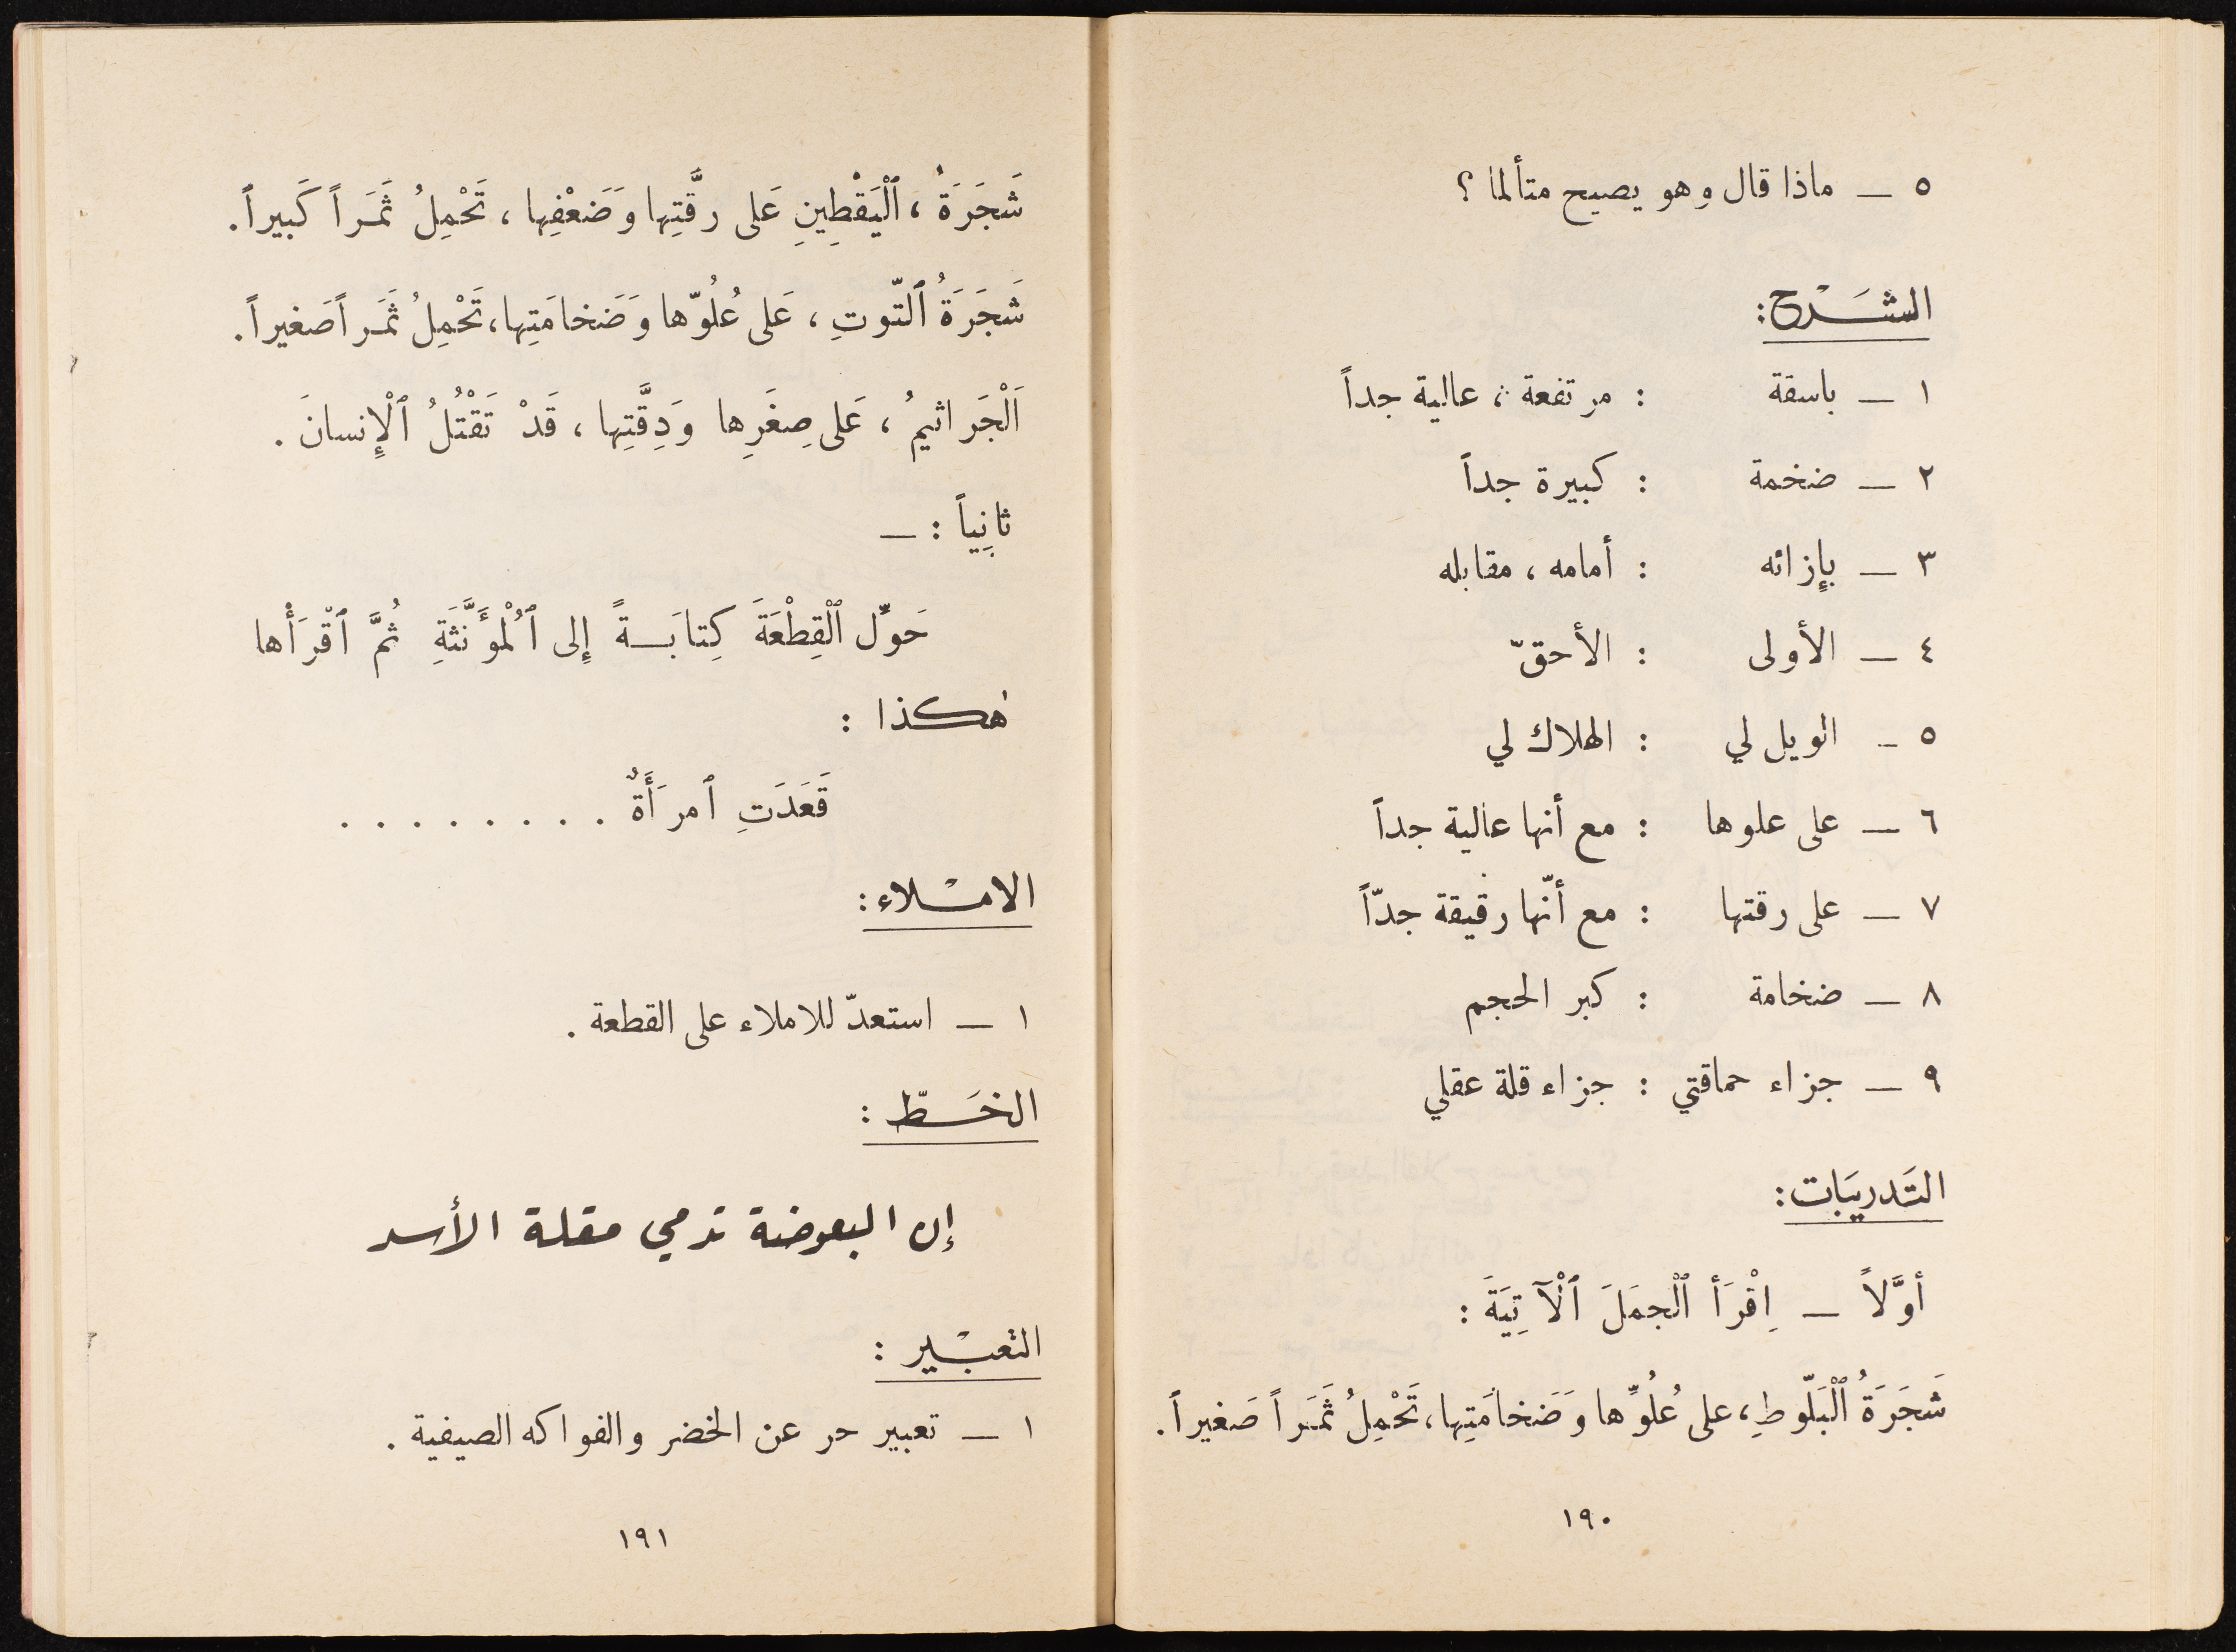 ٥ — ماذا قال وهو يصيح متألما ؟
الشَرْح:
١ — باسقة : مرتفعة ، عالية جداً
٢ — ضخمة : كبيرة جداً
٣ — بإزائه : أمامه ، مقابله
٤ — الأولى : الأحقّ
٥ — الويل لي : الهلاك لي
٦ — على علوها : مع أنها عالية جداً
٧ — على رقتها : مع أنّها رقيقة جدّاً
٨ — ضخامة : كبر الحجم
٩ — جزاء حماقتي : جزاء قلة عقلي
التَدريبَات:
أوَّلاً — اِقْرَأ ٱلْجمَلَ ٱلْآتِيَةَ :
شَجَرَةُ ٱلْبَلّوطِ، على عُلُوِّها وَضَخامَتِها، تَحْمِلُ ثَمَراً صَغيراً.
١٩٠
شَجَرَةُ ، ٱلْيَقْطِينِ عَلى رقَّتِها وَضَعْفِها ، تَحْمِلُ ثَمَراً كَبيراً.
شَجَرَةُ ٱلتّوتِ ، عَلى عُلُوّها وَضَخامَتِها، تَحْمِلُ ثَمَراً صَغيراً.
اَلْجَراثيمُ ، عَلى صِغَرِها وَدِقَّتِها ، قَدْ تَقْتُلُ ٱلْإِنسانَ .
ثانِياً : —
حَوِّل ٱلْقِطْعَةَ كِتابَةً إِلى ٱلْمُؤَنَّثَةِ ثُمَّ ٱقْرَأْها
هٰكذا :
قَعَدَتِ ٱمرَأَةٌ . . . . . . . .
الامْلاء:
١ — استعدّ للاملاء على القطعة .
الخَطّ :
إن البعوضة تدمي مقلة الأسد
التعبْير :
١ — تعبير حر عن الخضر والفواكه الصيفية .
١٩١